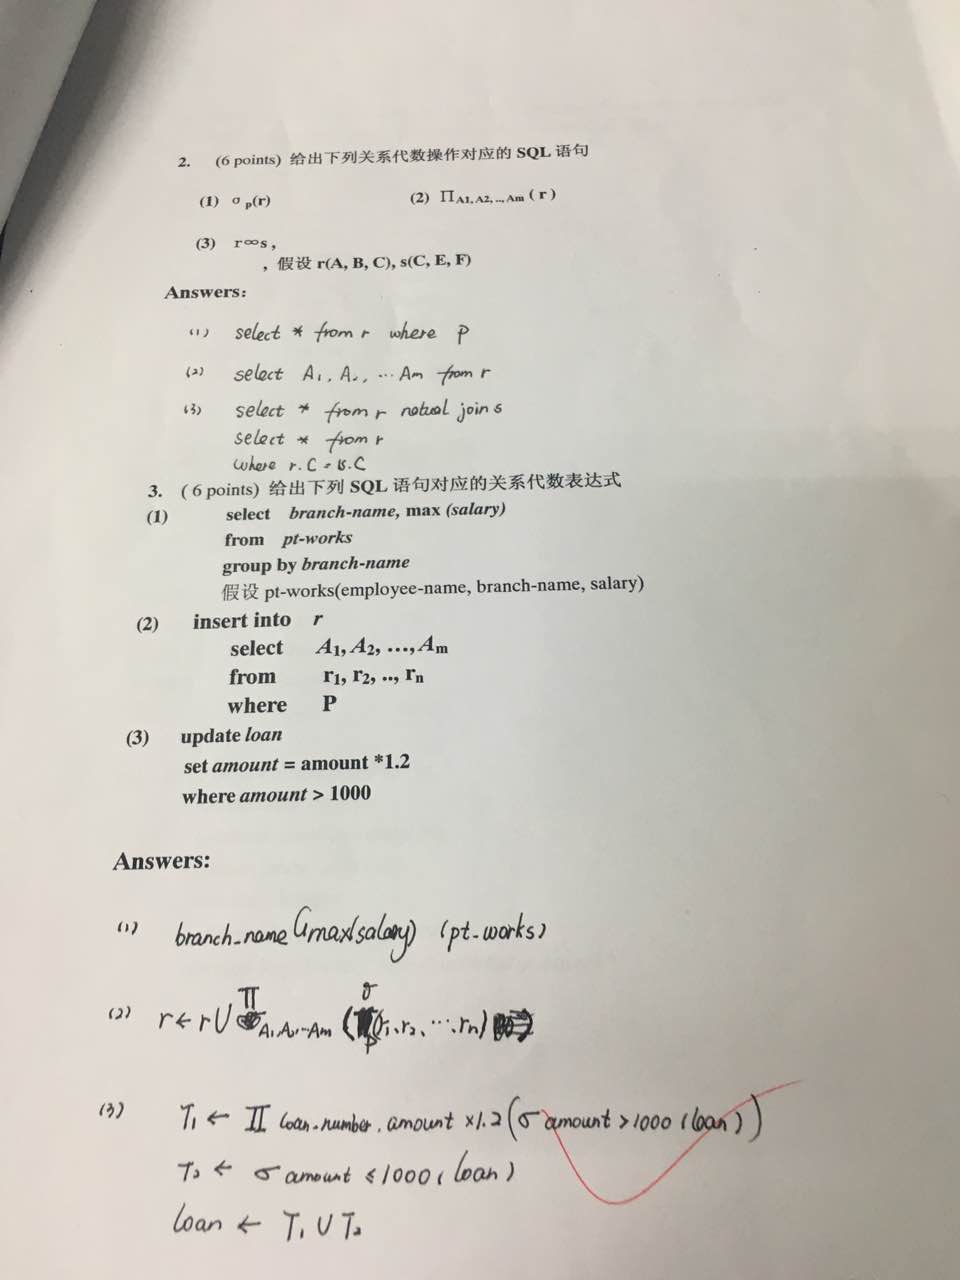 2. (6 points) 给出下列关系代数操作对应的 SQL 语句
(1) σ p(r) (2) ∏A1, A2, .., Am ( r )
(3) r∞s ,
, 假设 r(A, B, C), s(C, E, F)
Answers:
(1) select * from r where P
(2) select A1, A2, ... Am from r
(3) select * from r natual join s
select * from r
where r.C = s.C
3. ( 6 points) 给出下列 SQL 语句对应的关系代数表达式
(1) select branch-name, max (salary)
from pt-works
group by branch-name
假设 pt-works(employee-name, branch-name, salary)
(2) insert into r
select A1, A2, ..., Am
from r1, r2, .., rn
where P
(3) update loan
set amount = amount *1.2
where amount > 1000
Answers:
(1) branch-name G max(salary) (pt-works)
(2) r ← r ∪ ∏ A1, A2, ... Am ( σ P (r1, r2, ... rn) )
(3) T1 ← ∏ loan-number, amount ×1.2 ( σ amount > 1000 (loan) )
T2 ← σ amount ≤ 1000 (loan)
loan ← T1 ∪ T2